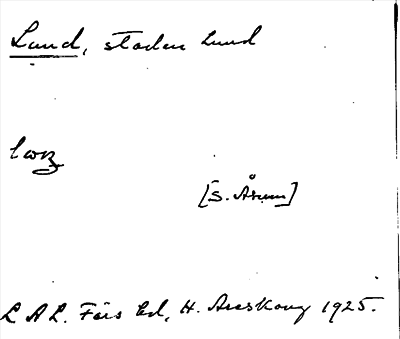 Lund, staden Lund
[S. Åsum]
L A L. Färs hd, H. Areskoug 1925.